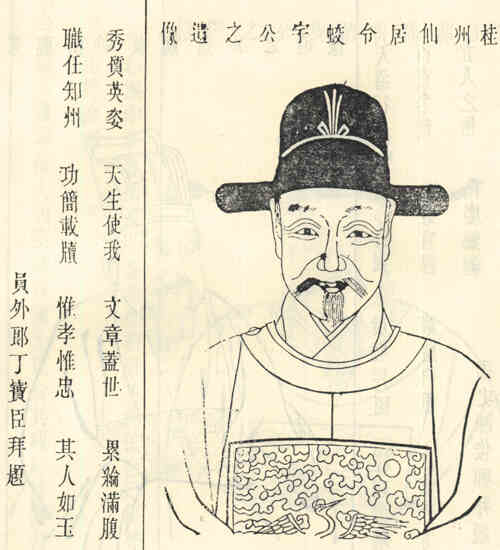 桂州仙居令蛟宇公之遺像
秀質英姿 天生使我 文章蓋世 綸滿腹
職任知州 功簡載牘 惟孝惟忠 其人如玉
員外郎丁臣拜題